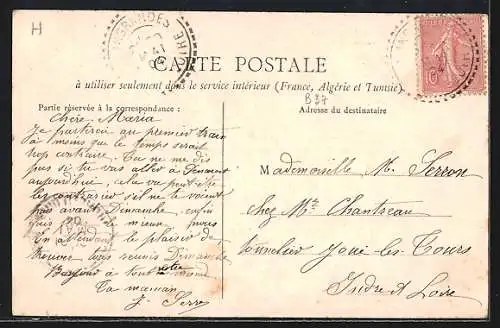 H
INGRANDES
CARTE POSTALE
à utiliser seulement dans le service intérieur (France, Algérie et Tunisie).
B 37
Partie réservée à la correspondance :
Adresse du destinataire
Chère Maria
Je partirai au premier train
à moins que le temps serait
trop contraire. Tu ne me dis
pas si tu vas aller à
aujourd'hui, cela va peut-être
les contrarier s'il ne le voient
pas avant Dimanche, enfin
mieux
En attendant le plaisir de
trouver tous réunis Dimanche
Bonjour à tout notre monde
Ta maman
J. Serron
Mademoiselle M. Serron
chez Mr Chantreau
tonnelier Joué-les-Tours
Indre et Loire